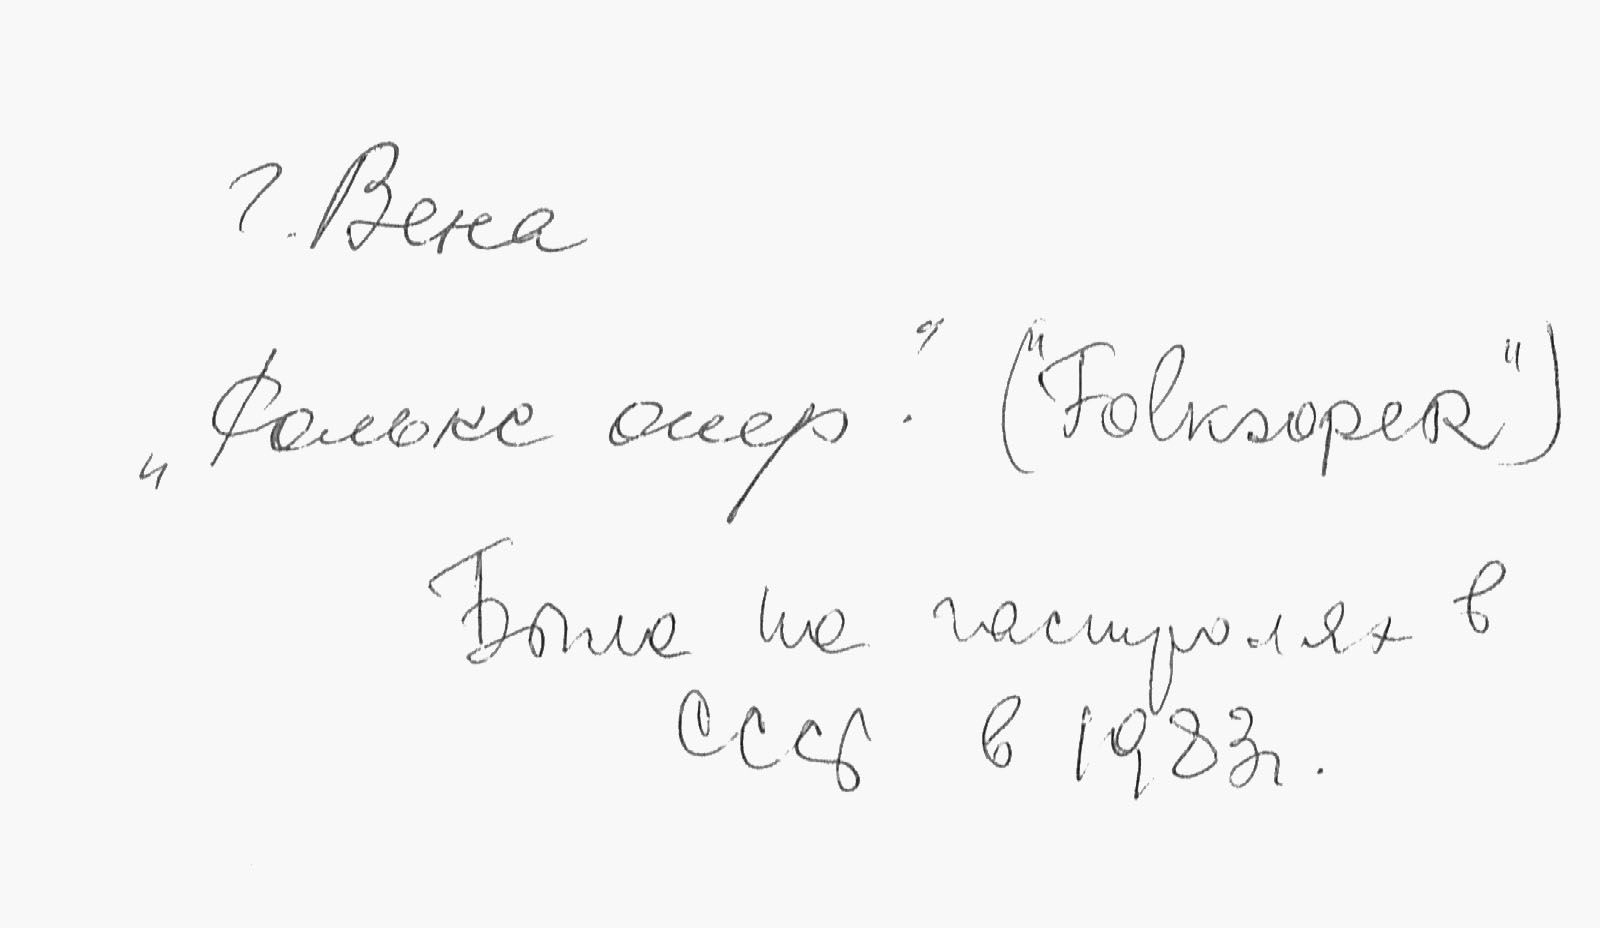 г. Вена
„Фолькс опер." ("Folksoper")
Была на гастролях в
СССР в 1983г.